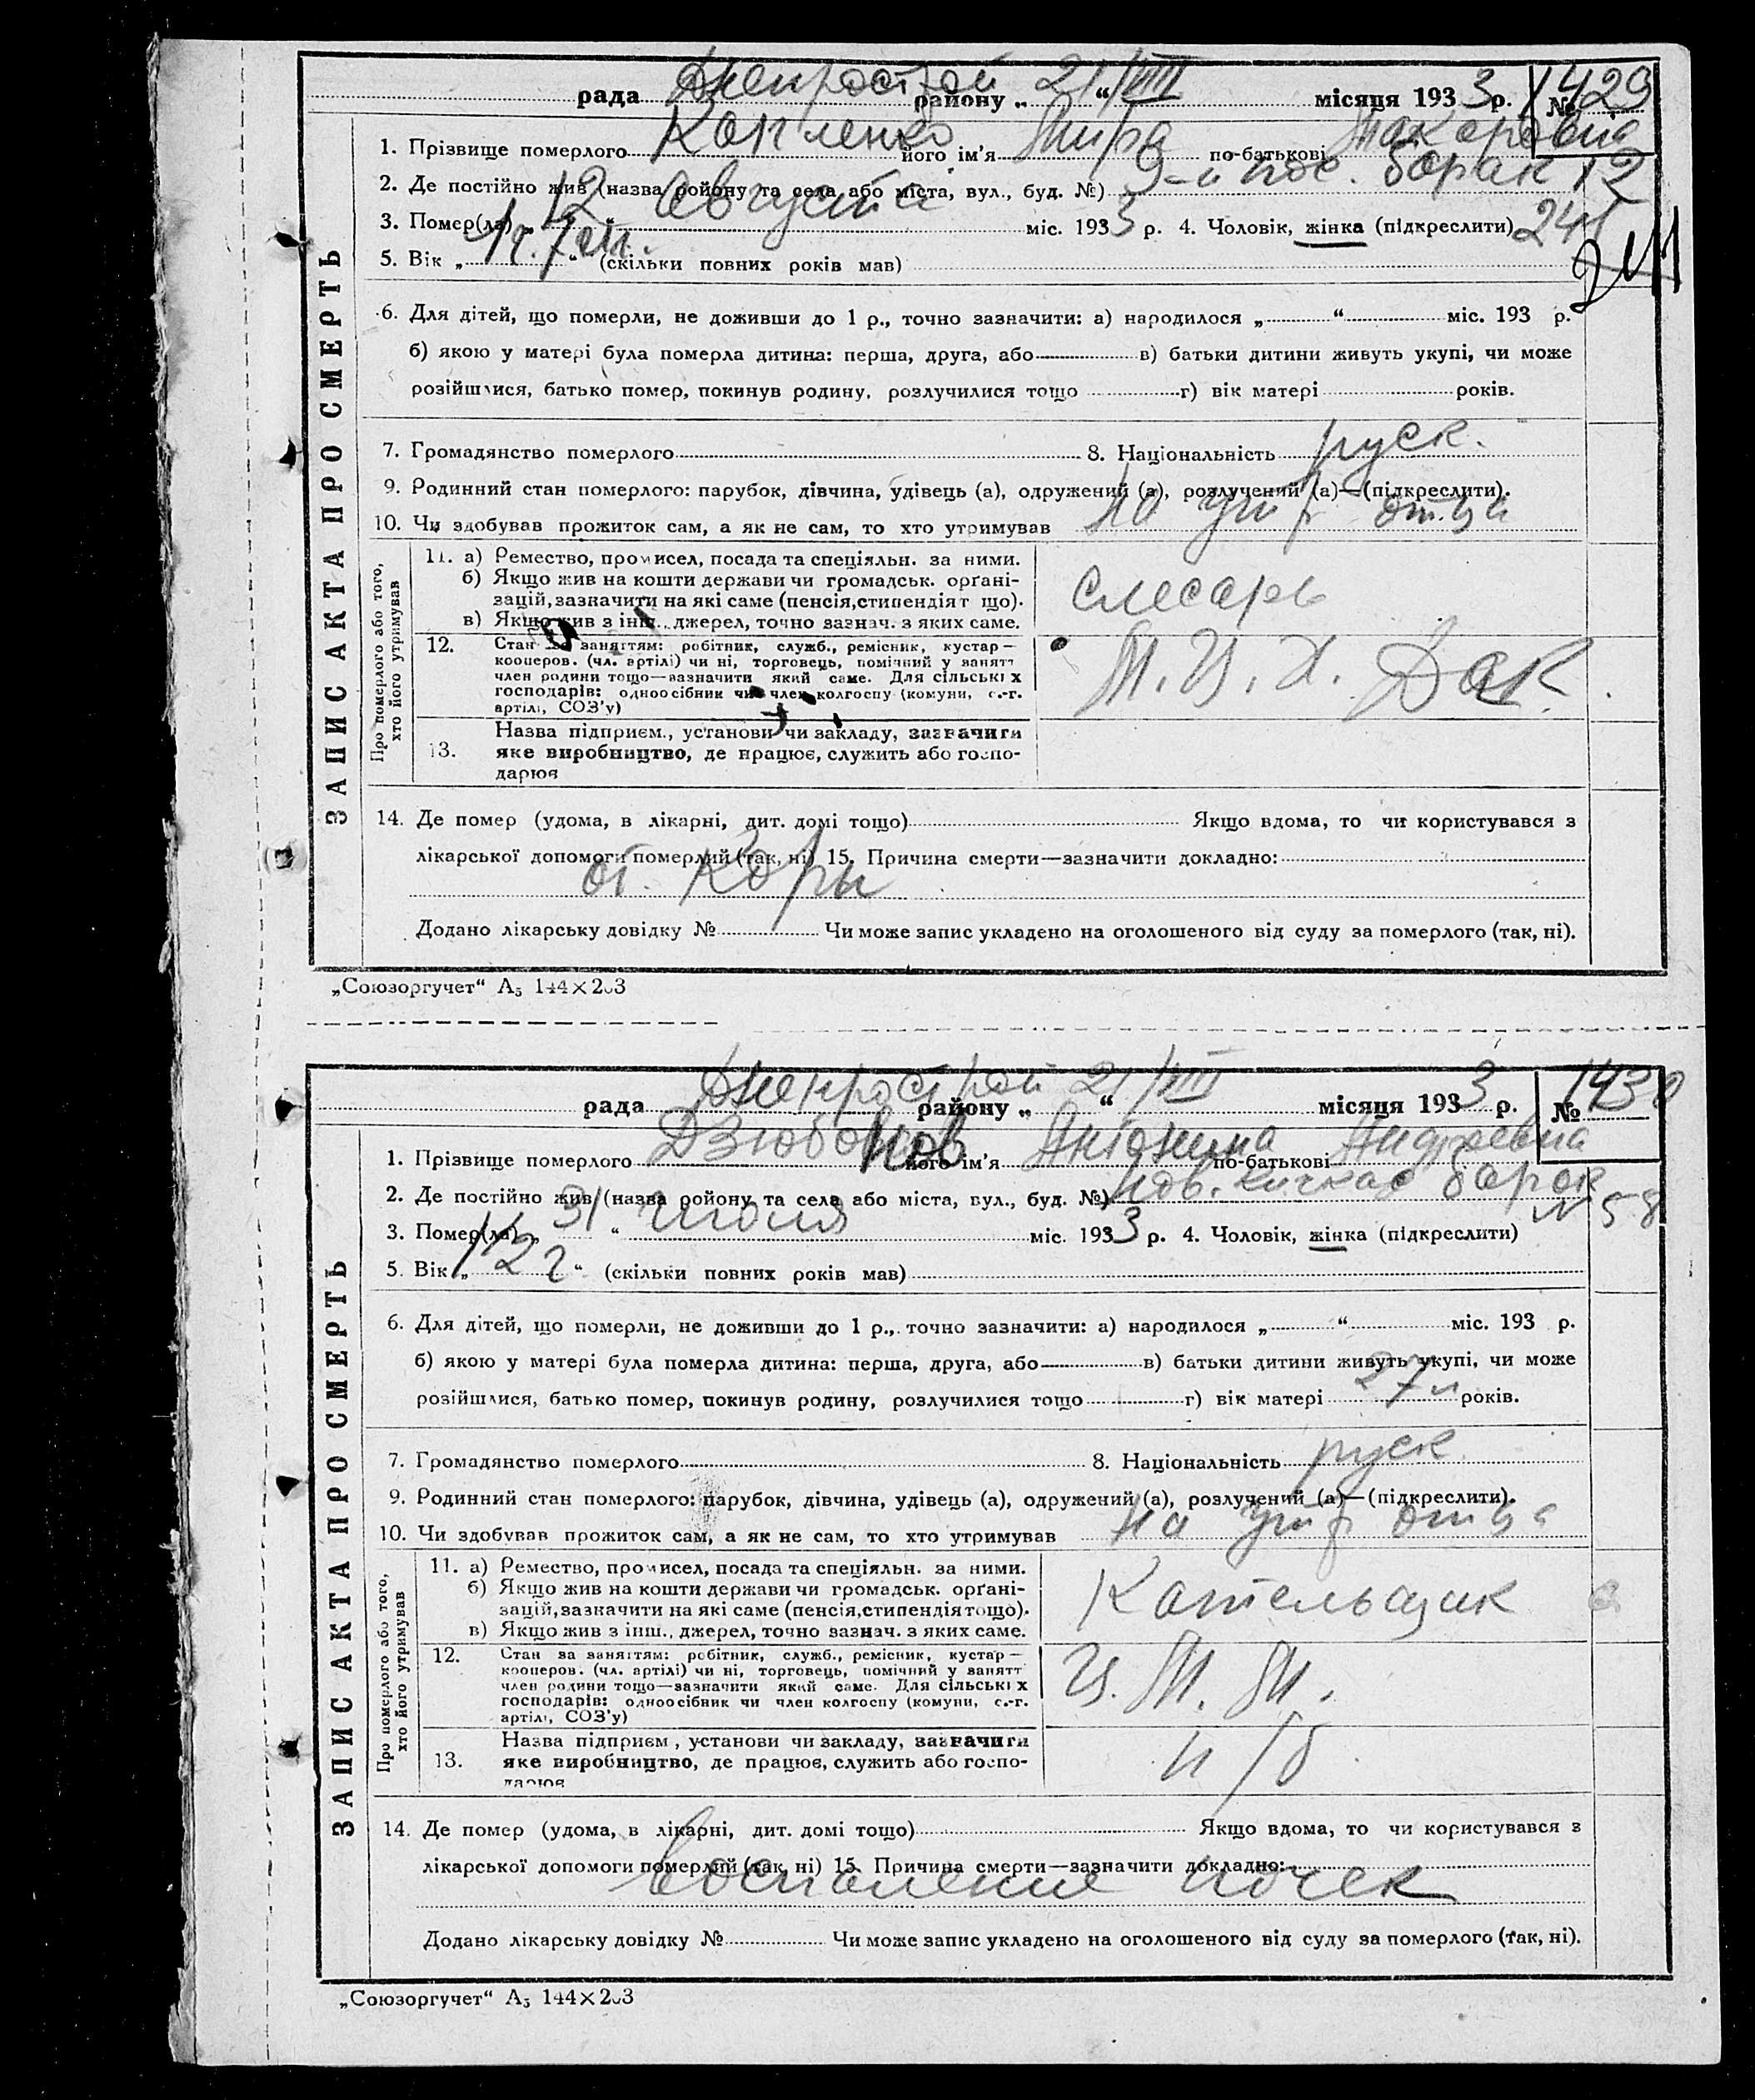 рада Днепрострой району „ 21 “ VIII місяця 1933 р. № 1429
1. Прізвище померлого його ім'я Мира по-батькові Макаровна
2. Де постійно жив (назва ройону та села або міста, вул., буд. №) 9-й пос. барак 12
3. Помер(ла) „ 12 “ Августа міс. 1933 р. 4. Чоловік, жінка (підкреслити) 241
241
5. Вік „ 1 г. 7 м. “ (скільки повних років мав)
6. Для дітей, що померли, не доживши до 1 р., точно зазначити: а) народилося „ “ міс. 193 р.
б) якою у матері була померла дитина: перша, друга, або в) батьки дитини живуть укупі, чи може
розійшлися, батько помер, покинув родину, розлучилися тощо г) вік матері років.
7. Громадянство померлого 8. Національність руск.
9. Родинний стан померлого: парубок, дівчина, удівець (а), одружений (а), розлучений (а)—(підкреслити).
10. Чи здобував прожиток сам, а як не сам, то хто утримував на ижд отца
11. а) Ремество, промисел, посада та спеціяльн. за ними.
б) Якщо жив на кошти держави чи громадськ. орґані-
зацій, зазначити на які саме (пенсія, стипендія т що).
в) Якщо жив з інш. джерел, точно зазнач. з яких саме.
Слесарь
12. Стан за заняттям: робітник, служб., ремісник, кустар—
кооперов. (чл. артілі) чи ні, торговець, помічний у занятт
член родини тощо—зазначити який саме. Для сільських
господарів: одноосібник чи член колгоспу (комуни, с.-г.
артілі, СОЗ'у)
13. Назва підприєм., установи чи закладу, зазначити
яке виробництво, де працює, служить або госпо-
дарює
14. Де помер (удома, в лікарні, дит. домі тощо) Якщо вдома, то чи користувався з
лікарської допомоги померлий (так, ні) 15. Причина смерти—зазначити докладно:
от Кори
Додано лікарську довідку № Чи може запис укладено на оголошеного від суду за померлого (так, ні).
ЗАПИС АКТА ПРО СМЕРТЬ
Про померлого або того,
хто його утримував
„Союзоргучет“ А₅ 144×203
рада Днепрострой району „ 21 “ VIII місяця 1933 р. № 1430
1. Прізвище померлого його ім'я Антонина по-батькові Андреевна
2. Де постійно жив (назва ройону та села або міста, вул., буд. №) Нов. Кичкас барак
№ 58
3. Помер(ла) „ 31 “ Июля міс. 1933 р. 4. Чоловік, жінка (підкреслити)
5. Вік „ 2 г “ (скільки повних років мав)
6. Для дітей, що померли, не доживши до 1 р., точно зазначити: а) народилося „ “ міс. 193 р.
б) якою у матері була померла дитина: перша, друга, або в) батьки дитини живуть укупі, чи може
розійшлися, батько помер, покинув родину, розлучилися тощо г) вік матері 27 л років.
7. Громадянство померлого 8. Національність руск
9. Родинний стан померлого: парубок, дівчина, удівець (а), одружений (а), розлучений (а)—(підкреслити).
10. Чи здобував прожиток сам, а як не сам, то хто утримував на ижд отца
11. а) Ремество, промисел, посада та спеціяльн. за ними.
б) Якщо жив на кошти держави чи громадськ. орґані-
зацій, зазначити на які саме (пенсія, стипендія тощо).
в) Якщо жив з інш., джерел, точно зазнач. з яких саме.
Котельщик
12. Стан за заняттям: робітник, служб., ремісник, кустар—
кооперов. (чл. артілі) чи ні, торговець, помічний у занятт
член родини тощо—зазначити який саме. Для сільських
господарів: одноосібник чи член колгоспу (комуни, с.-г.
артілі, СОЗ'у)
Ц. М. М.
13. Назва підприєм., установи чи закладу, зазначити
яке виробництво, де працює, служить або госпо-
дарює
14. Де помер (удома, в лікарні, дит. домі тощо) Якщо вдома, то чи користувався з
лікарської допомоги померлий (так, ні) 15. Причина смерти—зазначити докладно:
Воспаление почек
Додано лікарську довідку № Чи може запис укладено на оголошеного від суду за померлого (так, ні).
ЗАПИС АКТА ПРО СМЕРТЬ
Про померлого або того,
хто його утримував
„Союзоргучет“ А₅ 144×203